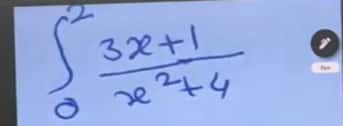 ∫₀² (3x+1)/(x²+4)